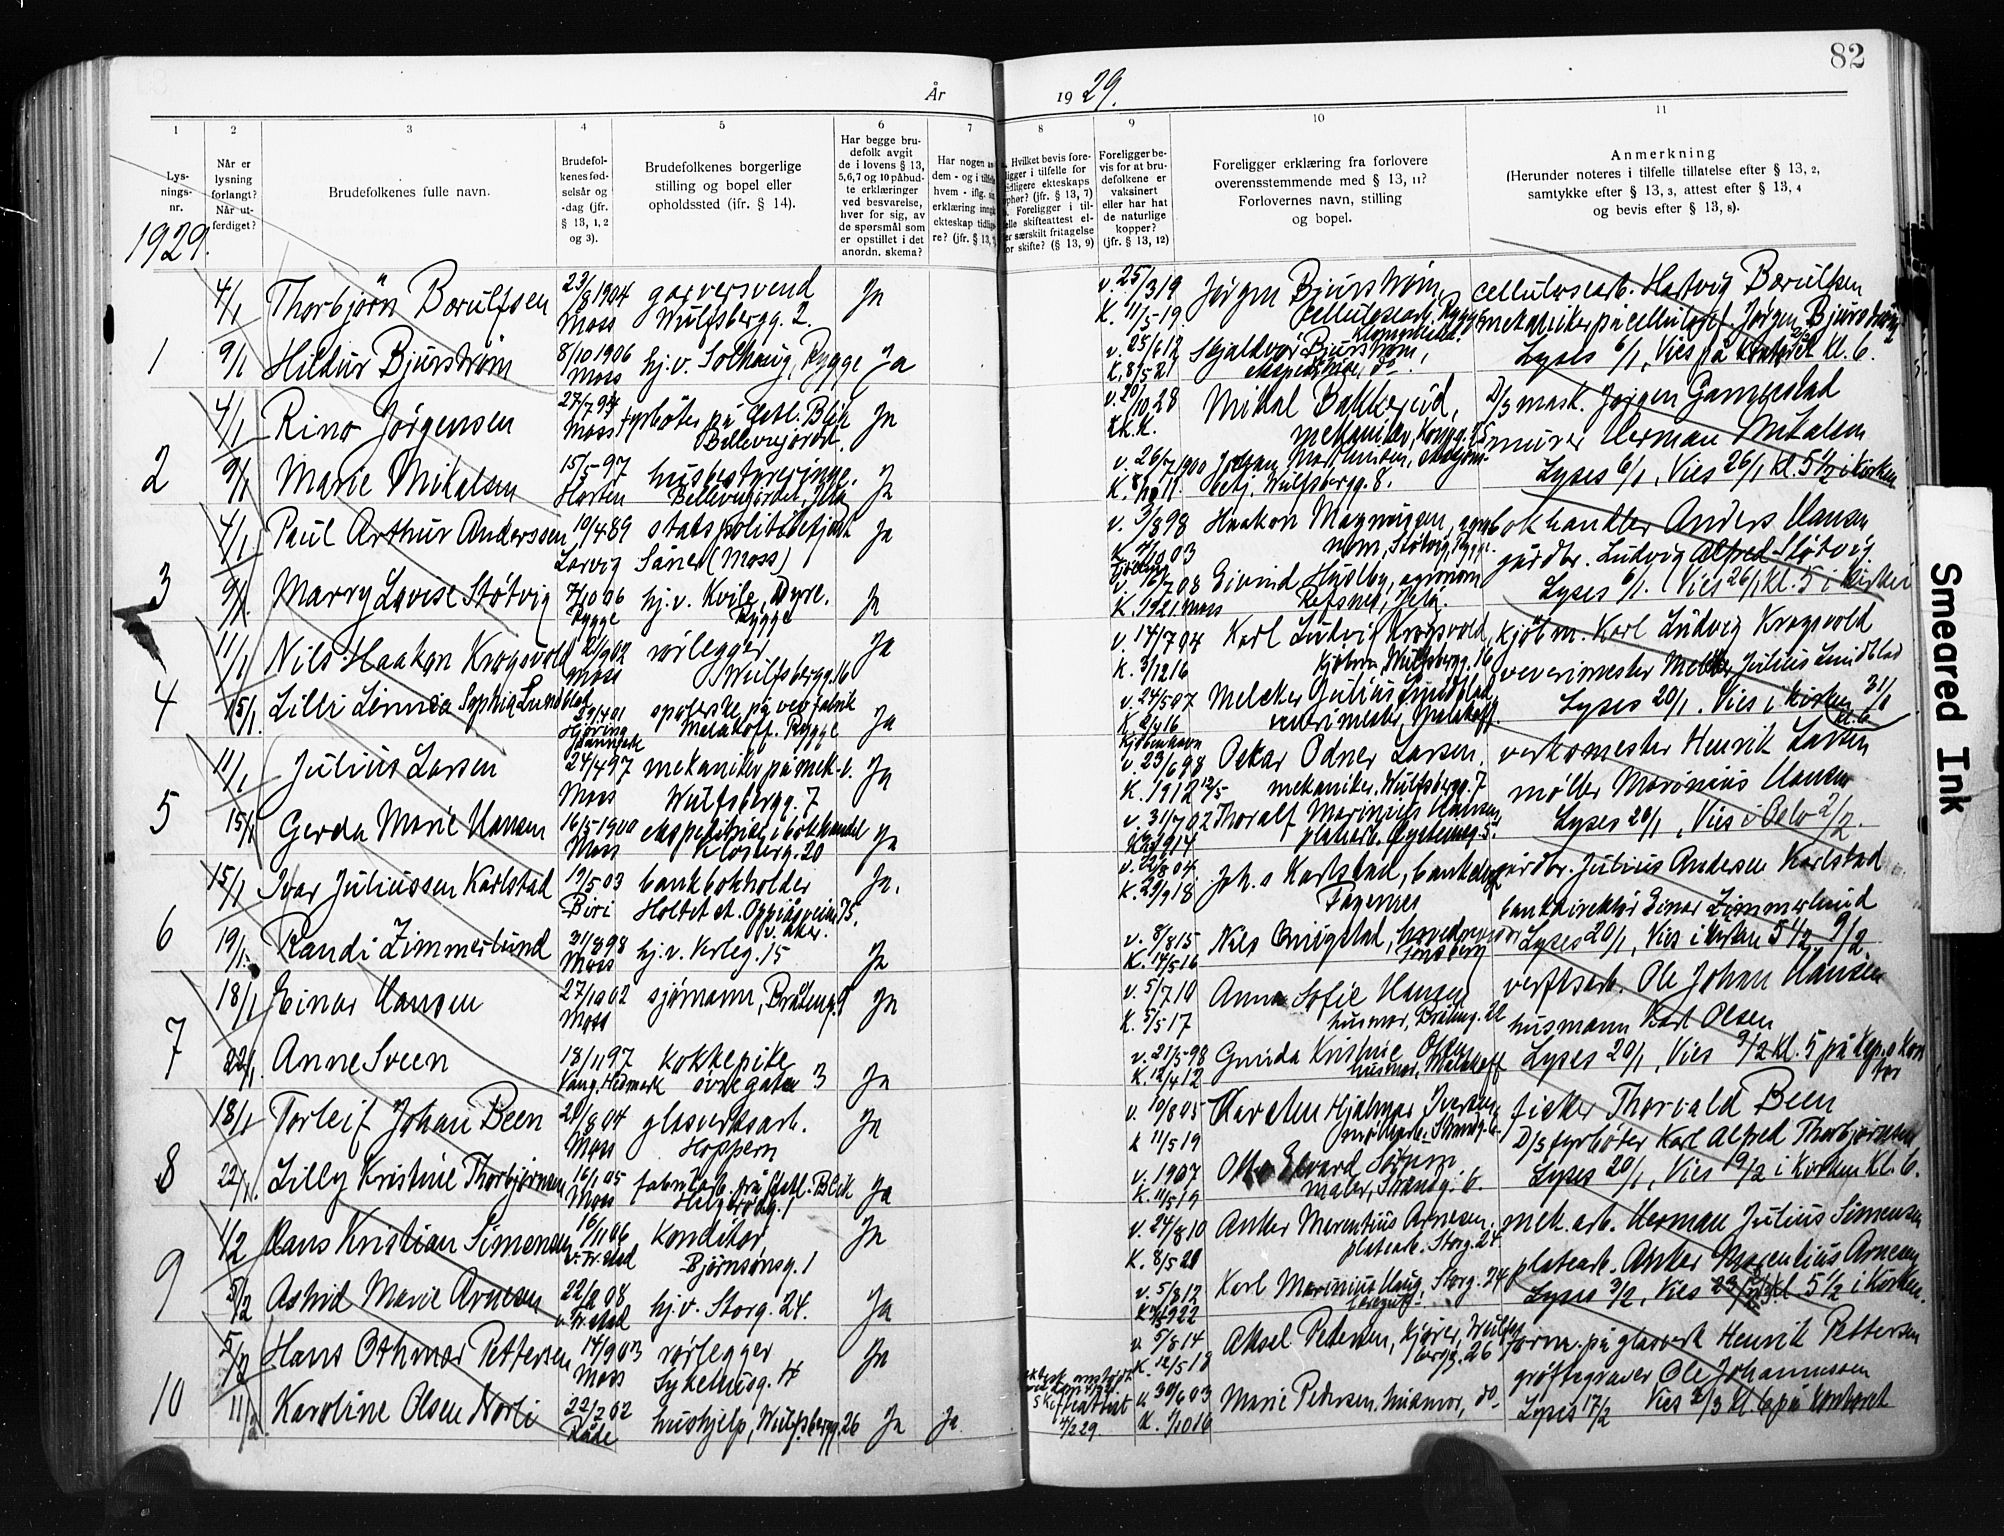 82
År 1929.
1 2 3 4 5 6 7 8 9 10 11
Lys-
nings-
nr.
Når er
lysning
forlangt?
Når ut-
ferdiget?
Brudefolkenes fulle navn.
Brudefol-
kenes fød-
selsår og
-dag (jfr.
§ 13, 1, 2
og 3).
Brudefolkenes borgerlige
stilling og bopel eller
opholdssted (ifr. § 14).
Har begge bru-
defolk avgit
de i lovens § 13,
5,6,7 og 10 påbud-
te erklæringer
ved besvarelse,
hver for sig, av
de spørsmål som
er opstillet i det
anordn. skema?
Har nogen av
dem - og i tilfelle
hvem - iflg. sin
erklæring inngått
ekteskap tidlig-
re? (jfr. § 13,
Hvilket bevis fore-
ligger i tilfelle for
tidligere ekteskaps
ophør? (jfr. § 13, 7)
Foreligger i til-
felle skifteattest el-
ler særskilt fritagelse
for skifte? (§ 13, 9)
Foreligger be-
vis for at bru-
defolkene er
vaksinert
eller har hat
de naturlige
kopper?
(jfr. § 13, 12)
Foreligger erklæring fra forlovere
overensstemmende med § 13, 11?
Forlovernes navn, stilling
og bopel.
Anmerkning
(Herunder noteres i tilfelle tillatelse efter § 13, 2,
samtykke efter § 13, 3, attest efter § 13, 4
og bevis efter § 13, 8).
1929.
4/1 Thorbjörn Børulfsen 23/8 1904 Moss garversvend Wulfsbergg. 2. Ja v. 25/3 19 K. 11/5-19. Jørgen Bjurstrøm, cellulosearb. Rygge cellulosearb. Hartvig Børulfsen
1 9/1 Hildur Bjurstrøm 8/10 1906 Moss hj. v. Solhaug, Rygge Ja v. 25/6 12 K. 8/5 21 Bjurstrøm, do. Jørgen Bjurstrøm Lyses 6/1, Vies på kontoret kl. 6.
4/1 Rino Jørgensen 27/7 94 Moss fyrbøter på Betl. Blik Ja v. 29/10 28 Mikal Bakkerud, mekaniker, Kongg. D/s mask. Jørgen
2 9/1 Marie Mikalsen 15/5-97 Horten husbestyrerinne. Ja v. 26/7 1900 Johan Martinsen, Wulfsbergg. 8. murer Herman Mikalsen Lyses 6/1, Vies 26/1 kl. 5 1/2 i Kirken
4/1 Paul Arthur Anderssen 19/4 89 Larvig statspolitibetjent Såner (Moss) Ja v. 3/8 98 Haakon Magnussen, Støtvig, Rygge. bokhandler Anders Hansen
3 9/1. Marry Lovise Støtvig 7/10 06 Rygge hj. v. Kvile, Dyre. Rygge Ja v. 6/7 08 K. 1921 Moss Eivind Hydlby, agronom Refsnes, Jeløy. gårdbr. Ludvig Alfred Støtvig Lyses 6/1. Vies 26/1 kl. 5 i kirken
11/1 Nils Haakon Krogsvold 21/9 02 Moss rørlegger Wulfsbergg. 16 Ja v. 14/7 04 K. 3/12 16 Karl Ludvig Krogsvold, Kjøbm. Wulfsbergg. 16 kjøbm. Karl Ludvig Krogsvold
4 15/1. Lilli Linnea Sophia Lundblad 29/4 01 Hjørring Danmark spolerske på vevfabrik Melløkoff. Rygge Ja v. 24/5 07 K. 2/4 16 Kjøbenhavn Melcker Julius Lundblad, vevmester, Melløkoff. vevemester Melcker Julius Lundblad Lyses 20/1. Vies i kirken 31/1 kl. 6
11/1 Julius Larsen 24/4 97 Moss mekaniker på mek. v. Wulfsbergg. 7 Ja v. 23/6 98 K. 1912 12/5 Oskar Odner Larsen, mekaniker, Wulfsbergg. 7 verksmester Henrik Larsen
5 15/1 Gerda Marie Hansen 16/5-1900 Moss ekspeditrise i bokhandel Klosterg. 20 Ja v. 31/7 02 Thoralf Marinius Hansen, platearb. møller Marinius Hansen Lyses 20/1, Vies i Oslo 2/2.
15/1 Ivar Juliussen Karlstad 19/5 03 Biri bankbokholder Holtet st. Oppsalveien 75. v. Aker. Ja. v. 22/8 04. K. 29/9 18 Joh. s Karlstad, Fagernes gårdbr. Julius Andersen Karlstad
6 19/1. Randi Zimmerlund 31/8 98 Moss hj. v. Verleg. 15 Ja v. 8/8 15 K. 14/5 16 Nils Tønsberg bankdirektør Einar Zimmerlund Lyses 20/1, Vies i kirken 5 1/2, 9/2
18/1 Einar Hansen 27/10 02 Moss sjømann, Bråteng. 9 Ja v. 5/7 10 K. 5/5 17 Anna Sofie Hansen husmor, Bråteng. 22 verftsarb. Ole Johan Hansen
7 22/1. Anne Sveen 18/11 97 Vang. Hedmark kokkepike øvre gaten 3 Ja v. 21/5-98 K. 12/4 12 Gunda Kristine Olsen husmor, Melløkoff husmann Karl Olsen Lyses 20/1, Vies 9/2 kl. 5 på kontor
18/1 Torleif Johan Been 20/8 04 Moss glasverksarb. Hoppern Ja v. 10/8 05 K 11/5 19 Karsten Hjalmar Iversen, Strandg. 6 fisker Thorvald Been
8 22/1. Lilly Kristine Thorbjørnsen 16/1 05 Moss fabrikarb. på Betl. Blik Helgerødg. 1 Ja v. 1907 K. 11/5 19 Otto Edvard maler, Strandg. 6. D/s fyrbøter Karl Alfred Thorbjørnsen Lyses 20/1, Vies 19/2 i Kirken Kl. 6.
1/2 Hans Kristian Simensen 16/11 06 v. Fr.stad konditor Bjørnsønsg. 1 Ja v. 24/8 10 K. 8/5 20 Anker Marentius Arnesen. platearb. Storg. 24 mek. arb. Herman Julius Simensen
9 5/2 Astrid Marie Arnesen 22/9 08 v. Fr.stad hj. v. Storg. 24. Ja v. 5/8 12 K 1922 Karl Marinius Haug, Storg. 24 platearb. Anker Marentius Arnesen Lyses 3/2, Vies 23/2 kl. 5 1/2 i Kirken.
5/2 Hans Othmar Pettersen 14/9 03 Moss rørlegger Sykehusg. 4 Ja v. 5/8 14 K. 12/5 18 Aksel Pedersen, kjører, Wulfsbergg. 26 form. på glasverk Henrik Pettersen
10 11/2. Karoline Olsen Norli 22/2 02 Råde hushjelp, Wulfsbergg. 26 Ja Ja Skifteattest 4/2 29 v. 30/6 03 K. 1/10 16 Marie Pedersen, husmor, do. grøftegraver Ole Johannessen Lyses 17/2 Vies 2/3 kl. 6 på kontoret
Smeared Ink